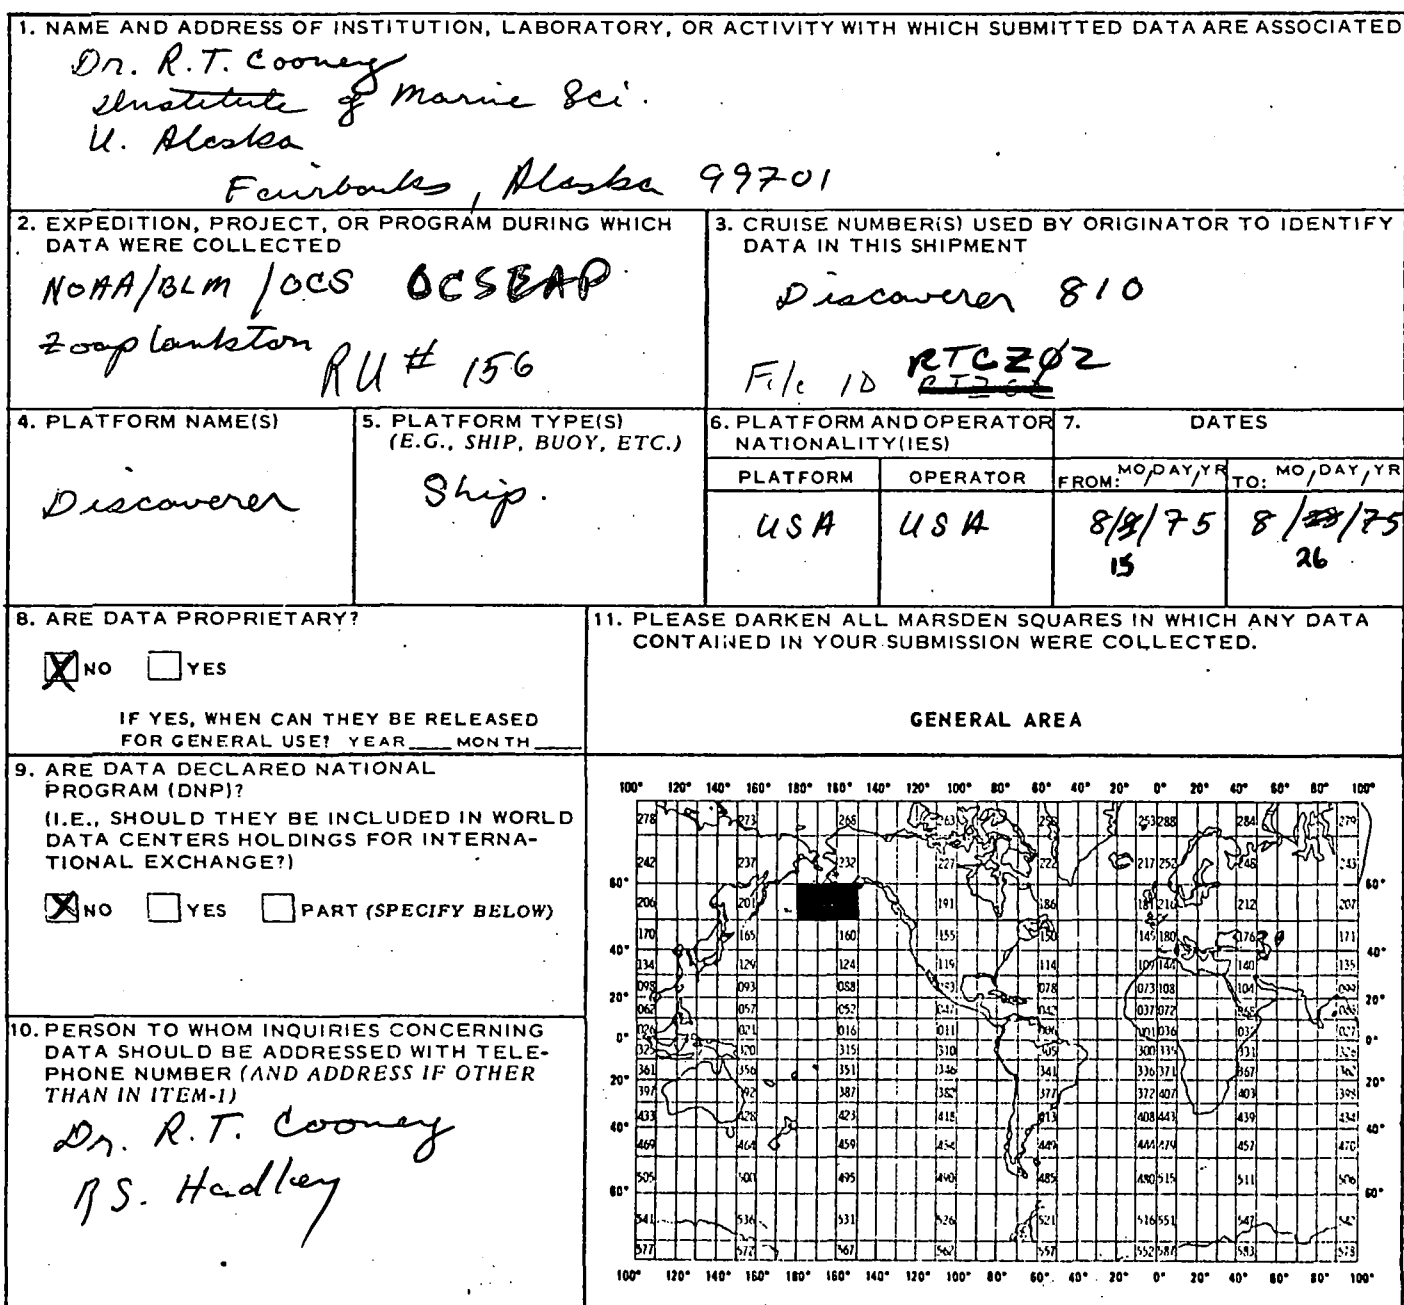 1. NAME AND ADDRESS OF INSTITUTION, LABORATORY, OR ACTIVITY WITH WHICH SUBMITTED DATA ARE ASSOCIATED
Dr. R.T. Cooney
Institute of Marine Sci.
U. Alaska
Fairbanks, Alaska 99701
2. EXPEDITION, PROJECT, OR PROGRAM DURING WHICH
DATA WERE COLLECTED
NOAA/BLM/OCS OCSEAP
Zooplankton
RU# 156
3. CRUISE NUMBER(S) USED BY ORIGINATOR TO IDENTIFY
DATA IN THIS SHIPMENT
Discoverer 810
File ID RTCZØ2
4. PLATFORM NAME(S)
Discoverer
5. PLATFORM TYPE(S)
(E.G., SHIP, BUOY, ETC.)
Ship.
6. PLATFORM AND OPERATOR
NATIONALITY(IES)
PLATFORM OPERATOR
USA USA
7. DATES
FROM: MO/DAY/YR TO: MO/DAY/YR
8/ /75 8/ /75
15 26
8. ARE DATA PROPRIETARY?
X NO YES
IF YES, WHEN CAN THEY BE RELEASED
FOR GENERAL USE? YEAR____ MONTH____
9. ARE DATA DECLARED NATIONAL
PROGRAM (DNP)?
(I.E., SHOULD THEY BE INCLUDED IN WORLD
DATA CENTERS HOLDINGS FOR INTERNA-
TIONAL EXCHANGE?)
X NO YES PART (SPECIFY BELOW)
10. PERSON TO WHOM INQUIRIES CONCERNING
DATA SHOULD BE ADDRESSED WITH TELE-
PHONE NUMBER (AND ADDRESS IF OTHER
THAN IN ITEM-1)
Dr. R.T. Cooney
R S. Hadley
11. PLEASE DARKEN ALL MARSDEN SQUARES IN WHICH ANY DATA
CONTAINED IN YOUR SUBMISSION WERE COLLECTED.
GENERAL AREA
100° 120° 140° 160° 180° 160° 140° 120° 100° 80° 60° 40° 20° 0° 20° 40° 60° 80° 100°
278 273 268 263 253 288 284 279
242 237 232 227 222 217 243
60° 60°
206 201 191 186 212 207
170 165 160 155 150 145 180 176 171
40° 40°
134 129 124 119 114 109 144 140 135
098 093 088 078 073 108 104 099
20° 20°
062 057 052 047 042 037 072
026 021 016 011 001 036
0° 0°
320 315 310 300
361 356 351 346 341 336 371 367
20° 20°
397 392 387 382 377 372 407 403 398
433 428 423 418 413 408 443 439 434
40° 40°
469 464 459 454 449 444 479 457 470
505 500 495 490 485 480 515 511 506
60° 60°
541 536 531 526 521 516 551 547 542
577 572 567 562 557 552 587 583 578
100° 120° 140° 160° 180° 160° 140° 120° 100° 80° 60° 40° 20° 0° 20° 40° 60° 80° 100°